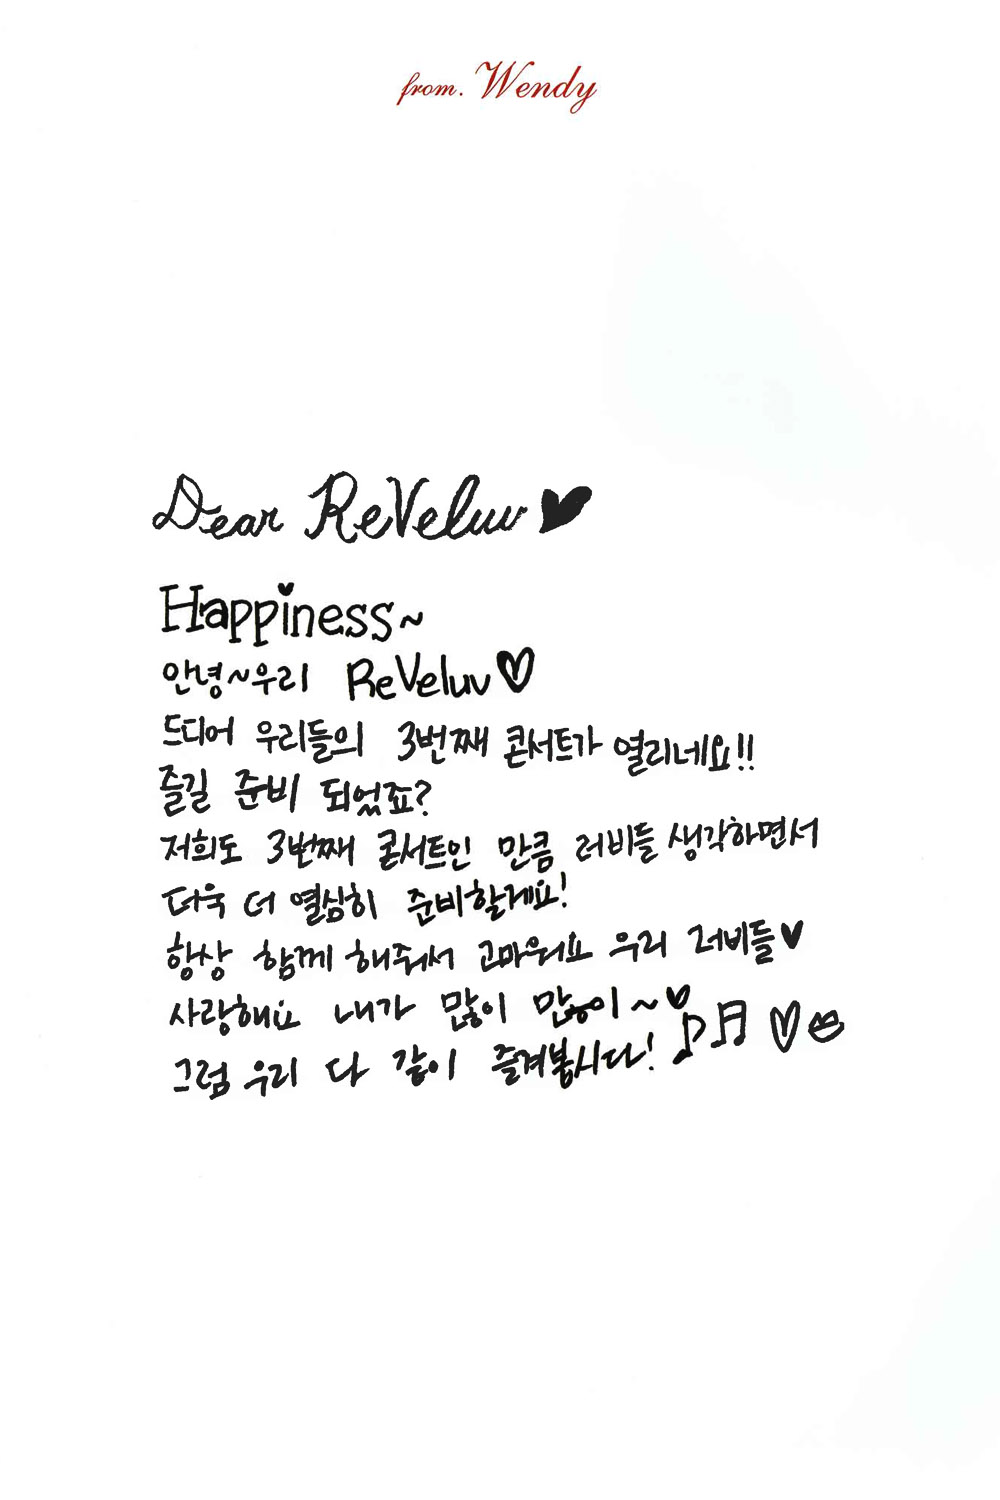 from. Wendy
Dear ReVeluv ♥
Happiness~
안녕~우리 ReVeluv♡
드디어 우리들의 3번째 콘서트가 열리네요!!
즐길 준비 되었죠?
저희도 3번째 콘서트인 만큼 러비들 생각하면서
더욱 더 열심히 준비할게요!
항상 함께 해줘서 고마워요 우리 러비들♥
사랑해요 내가 많이 많이~♡
그럼 우리 다 같이 즐겨봅시다! ♪♬ ♡